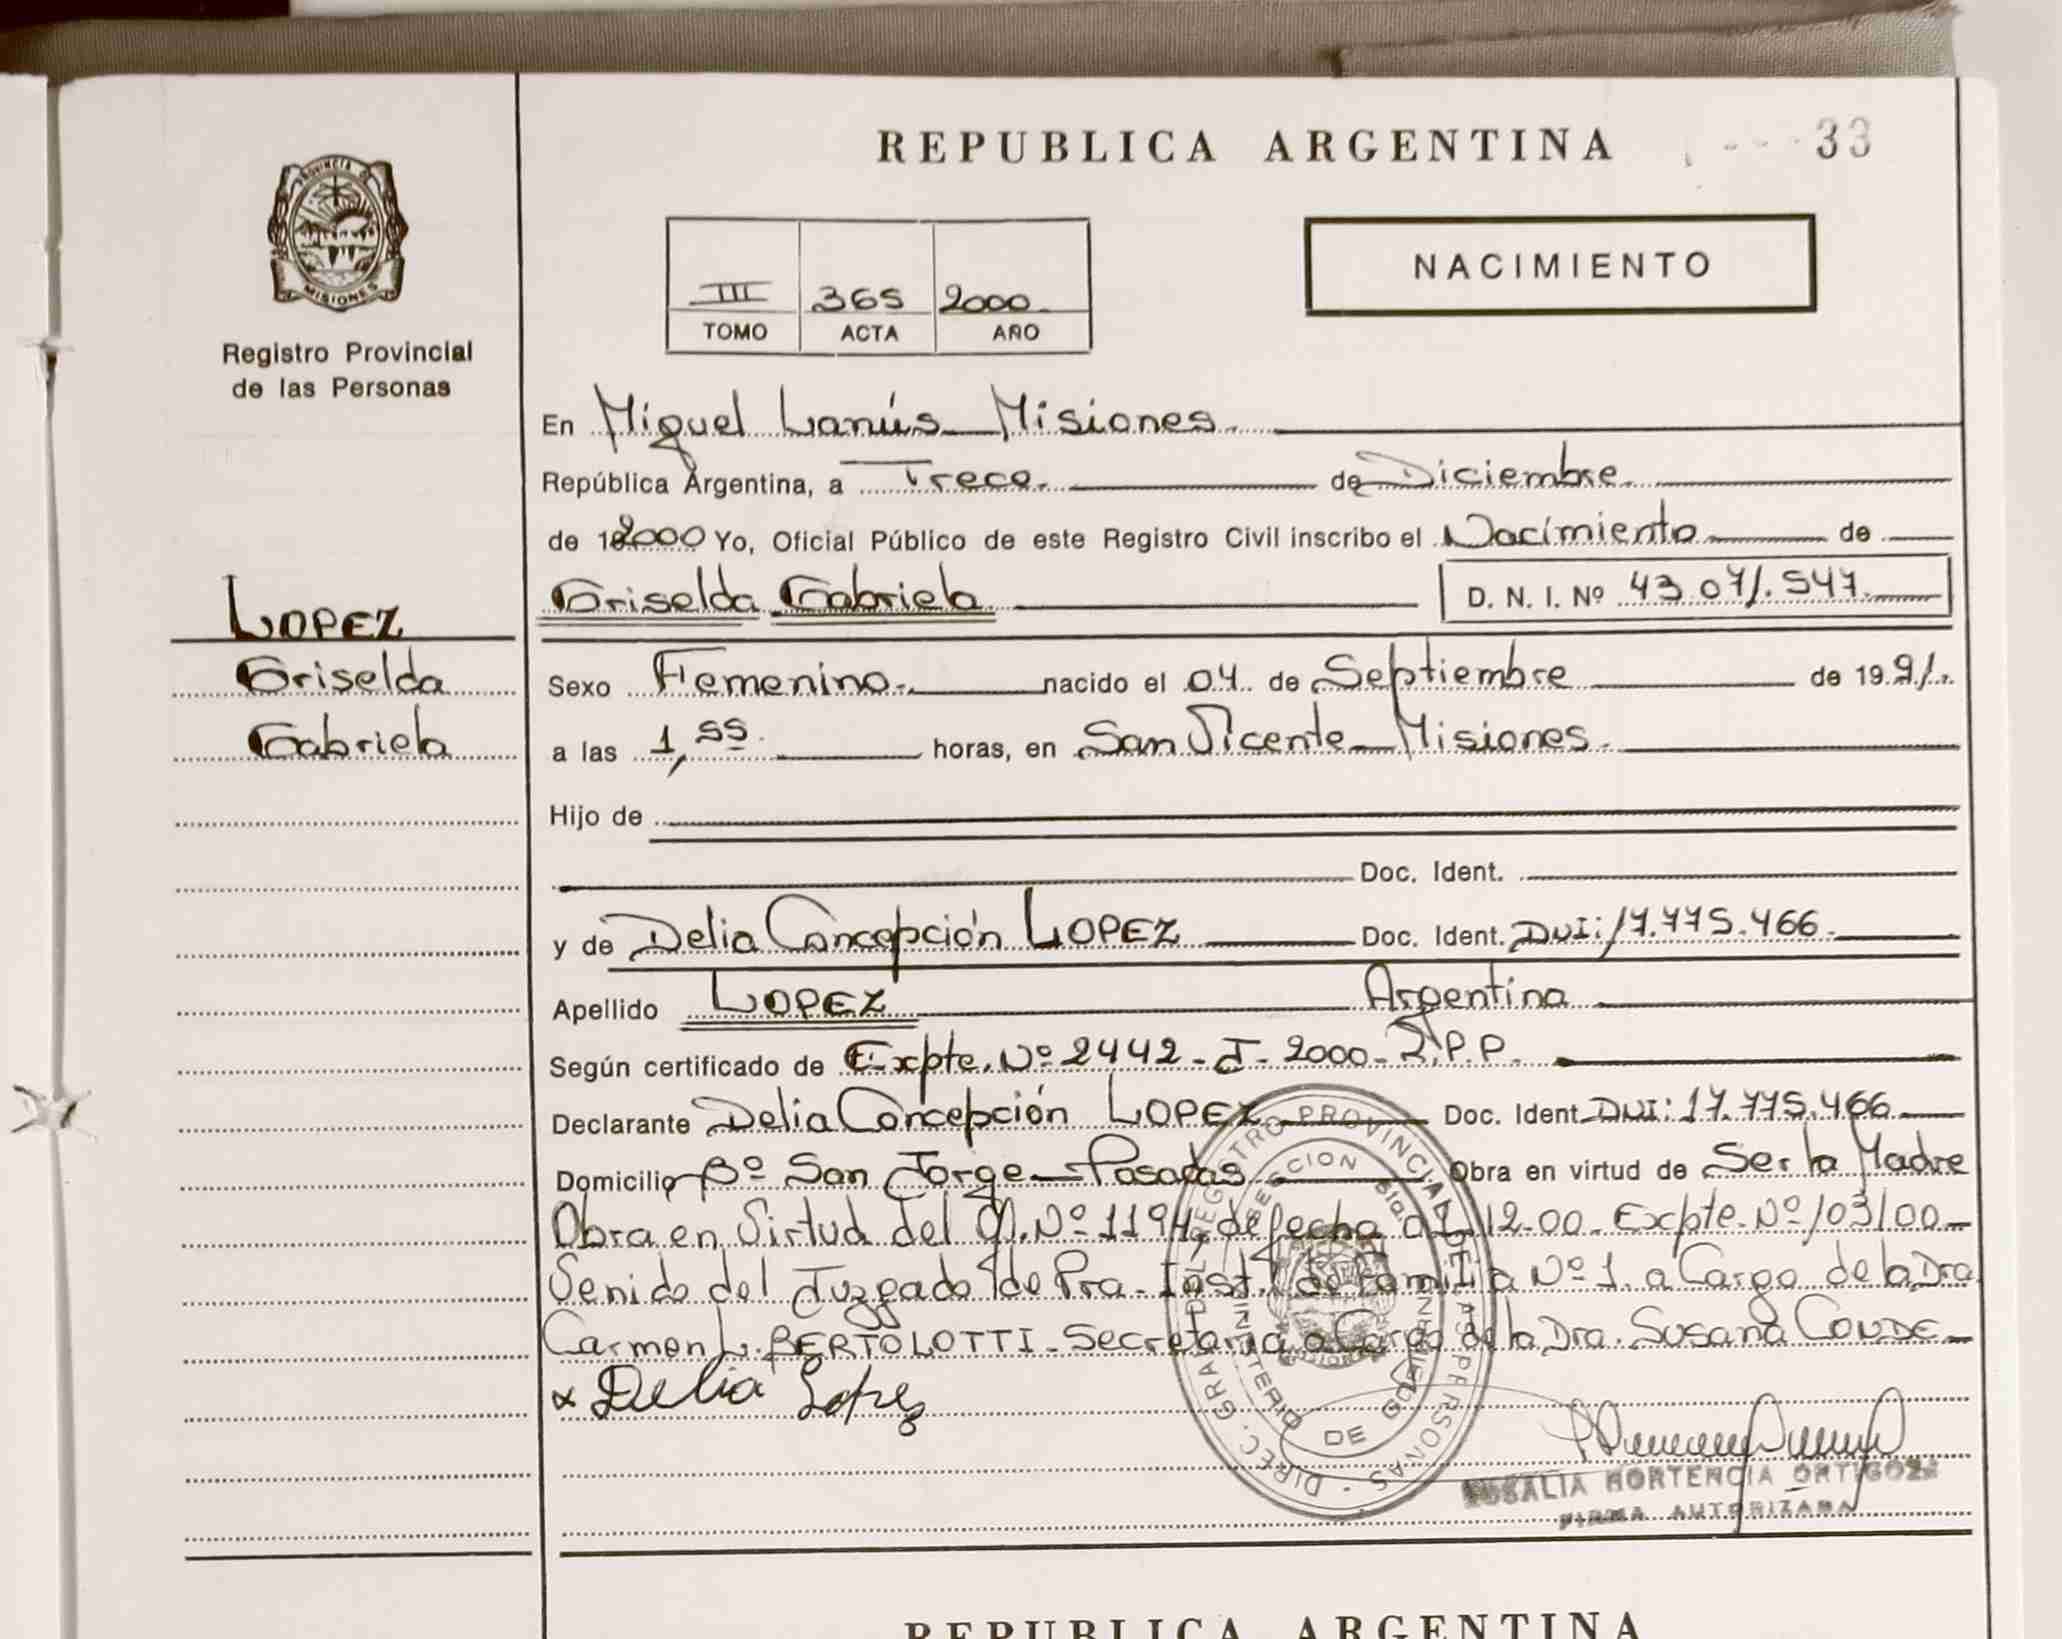 REPUBLICA ARGENTINA
33
PROVINCIA DE
MISIONES
Registro Provincial
de las Personas
III 365 2000
TOMO ACTA AÑO
NACIMIENTO
En Miguel Lanús Misiones
República Argentina, a Trece de Diciembre
de 2000 Yo, Oficial Público de este Registro Civil inscribo el Nacimiento de
Griselda Gabriela D. N. I. Nº 43.071.547
LOPEZ
Griselda
Gabriela
Sexo Femenino nacido el 04 de Septiembre de 1991
a las 1,55 horas, en San Vicente Misiones
Hijo de
Doc. Ident.
y de Delia Concepción LOPEZ Doc. Ident. DNI: 17.775.466
Apellido LOPEZ Argentina
Según certificado de Expte. Nº 2442-J-2000-R.P.P.
Declarante Delia Concepción LOPEZ Doc. Ident. DNI: 17.775.466
Domicilio Bº San Jorge-Posadas Obra en virtud de Ser la Madre
Obra en Virtud del Of. Nº 1194 de fecha 01-12-00- Expte. Nº 103/00-
Venido del Juzgado de Pra. Inst. de Familia Nº 1. a Cargo de la Dra
Carmen L. BERTOLOTTI-Secretaria a Cargo de la Dra. Susana CONDE
x Delia Lopez
DIREC. GRAL DEL REGISTRO PROVINCIAL DE LAS PERSONAS
MINISTERIO DE GOBIERNO
ROSALIA HORTENCIA ORTIGOZA
FIRMA AUTORIZADA
REPUBLICA ARGENTINA